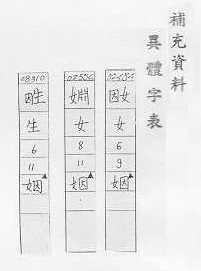 補充資料
異體字表
女
6
9
姻
婣
女
8
11
姻
08310
生
6
11
姻